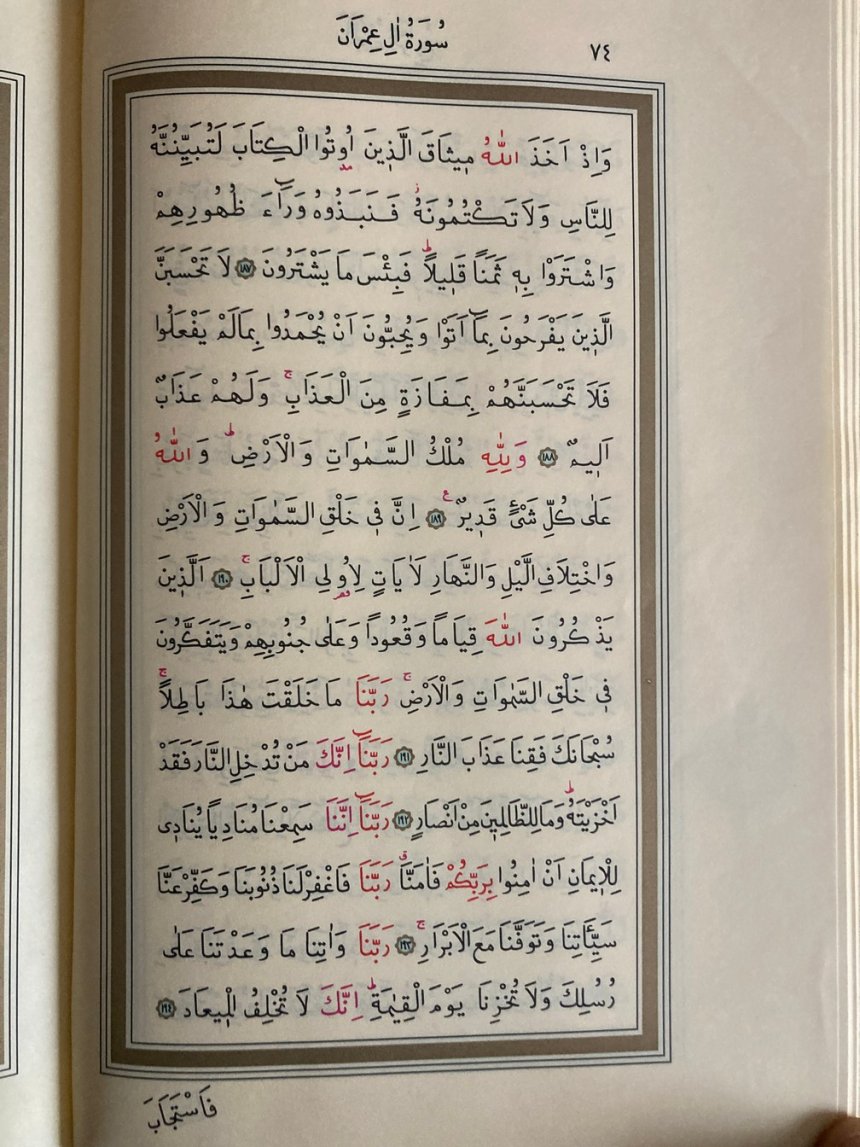 سُورَةُ اٰلِ عِمْرَانَ
٧٤
وَاِذْ اَخَذَ اللّٰهُ مٖيثَاقَ الَّذٖينَ اُوتُوا الْكِتَابَ لَتُبَيِّنُنَّهُ
لِلنَّاسِ وَلَا تَكْتُمُونَهُۘ فَنَبَذُوهُ وَرَٓاءَ ظُهُورِهِمْ
وَاشْتَرَوْا بِهٖ ثَمَنًا قَلٖيلًاۜ فَبِئْسَ مَا يَشْتَرُونَ ١٨٧ لَا تَحْسَبَنَّ
الَّذٖينَ يَفْرَحُونَ بِمَٓا اَتَوْا وَيُحِبُّونَ اَنْ يُحْمَدُوا بِمَا لَمْ يَفْعَلُوا
فَلَا تَحْسَبَنَّهُمْ بِمَفَازَةٍ مِنَ الْعَذَابِۚ وَلَهُمْ عَذَابٌ
اَلٖيمٌ ١٨٨ وَلِلّٰهِ مُلْكُ السَّمٰوَاتِ وَالْاَرْضِۜ وَاللّٰهُ
عَلٰى كُلِّ شَیْءٍ قَدٖيرٌ ࣖ ١٨٩ اِنَّ فٖى خَلْقِ السَّمٰوَاتِ وَالْاَرْضِ
وَاخْتِلَافِ الَّيْلِ وَالنَّهَارِ لَاٰيَاتٍ لِاُولِى الْاَلْبَابِۚ ١٩٠ اَلَّذٖينَ
يَذْكُرُونَ اللّٰهَ قِيَامًا وَقُعُودًا وَعَلٰى جُنُوبِهِمْ وَيَتَفَكَّرُونَ
فٖى خَلْقِ السَّمٰوَاتِ وَالْاَرْضِۚ رَبَّنَا مَا خَلَقْتَ هٰذَا بَاطِلًاۚ
سُبْحَانَكَ فَقِنَا عَذَابَ النَّارِ ١٩١ رَبَّنَٓا اِنَّكَ مَنْ تُدْخِلِ النَّارَ فَقَدْ
اَخْزَيْتَهُۜ وَمَا لِلظَّالِمٖينَ مِنْ اَنْصَارٍ ١٩٢ رَبَّنَٓا اِنَّنَا سَمِعْنَا مُنَادِيًا يُنَادٖى
لِلْاٖيمَانِ اَنْ اٰمِنُوا بِرَبِّكُمْ فَاٰمَنَّاۗ رَبَّنَا فَاغْفِرْ لَنَا ذُنُوبَنَا وَكَفِّرْ عَنَّا
سَيِّـَٔاتِنَا وَتَوَفَّنَا مَعَ الْاَبْرَارِۚ ١٩٣ رَبَّنَا وَاٰتِنَا مَا وَعَدْتَنَا عَلٰى
رُسُلِكَ وَلَا تُخْزِنَا يَوْمَ الْقِيٰمَةِۜ اِنَّكَ لَا تُخْلِفُ الْمٖيعَادَ ١٩٤
فَاسْتَجَابَ